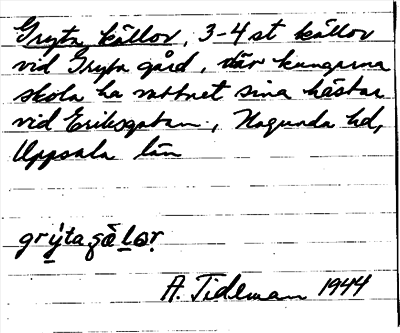 Gryta källor, 3-4 st källor
vid Gryta gård, där kungarna
skola ha vattnat sina hästar
vid Eriksgatan, Hagunda hd,
Uppsala län
A. Tideman 1944